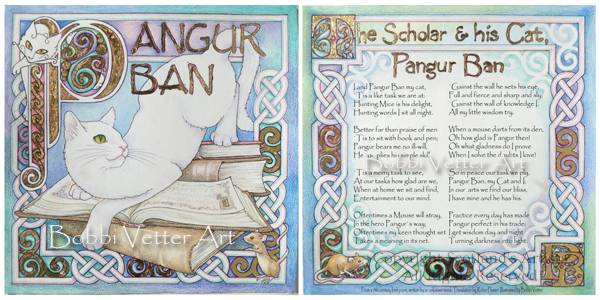 PANGUR
BAN
Bobbi Vetter Art
The Scholar & his Cat,
Pangur Ban
I and Pangur Ban my cat,
'Tis a like task we are at:
Hunting Mice is his delight,
Hunting words I sit all night.
Better far than praise of men
'Tis to sit with book and pen;
Pangur bears me no ill-will,
He too plies his simple skill.
'Tis a merry task to see,
At our tasks how glad are we,
When at home we sit and find,
Entertainment to our mind.
Oftentimes a Mouse will stray,
In the hero Pangur's way;
Oftentimes my keen thought set
Takes a meaning in its net.
'Gainst the wall he sets his eye,
Full and fierce and sharp and sly;
'Gainst the wall of knowledge I
All my little wisdom try.
When a mouse darts from its den,
Oh how glad is Pangur then!
Oh what gladness do I prove
When I solve the doubts I love!
So in peace our task we ply,
Pangur Ban, my Cat and I,
In our arts we find our bliss,
I have mine and he has his.
Practice every day has made
Pangur perfect in his trade;
I get wisdom day and night
Turning darkness into light.
Bobbi Vetter Art